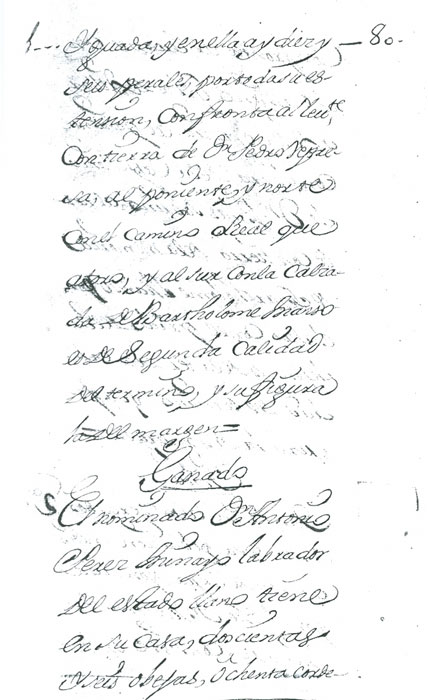 Yguada, y en ella ay diez y — 80.
seis perales, por toda su es
tension, Confronta al levte
Con tierra de Dn Pedro
al poniente, y norte
Con el Camino Real que
y al sur con la Cabza
da de Bartholome
es de Segunda Calidad
del termino, y su figura
la del margen =
Ganado
El nominado Dn Antonio
Perez labrador
del estado llano tiene
en su Casa, doscientas
y seis obejas, ochenta corde-